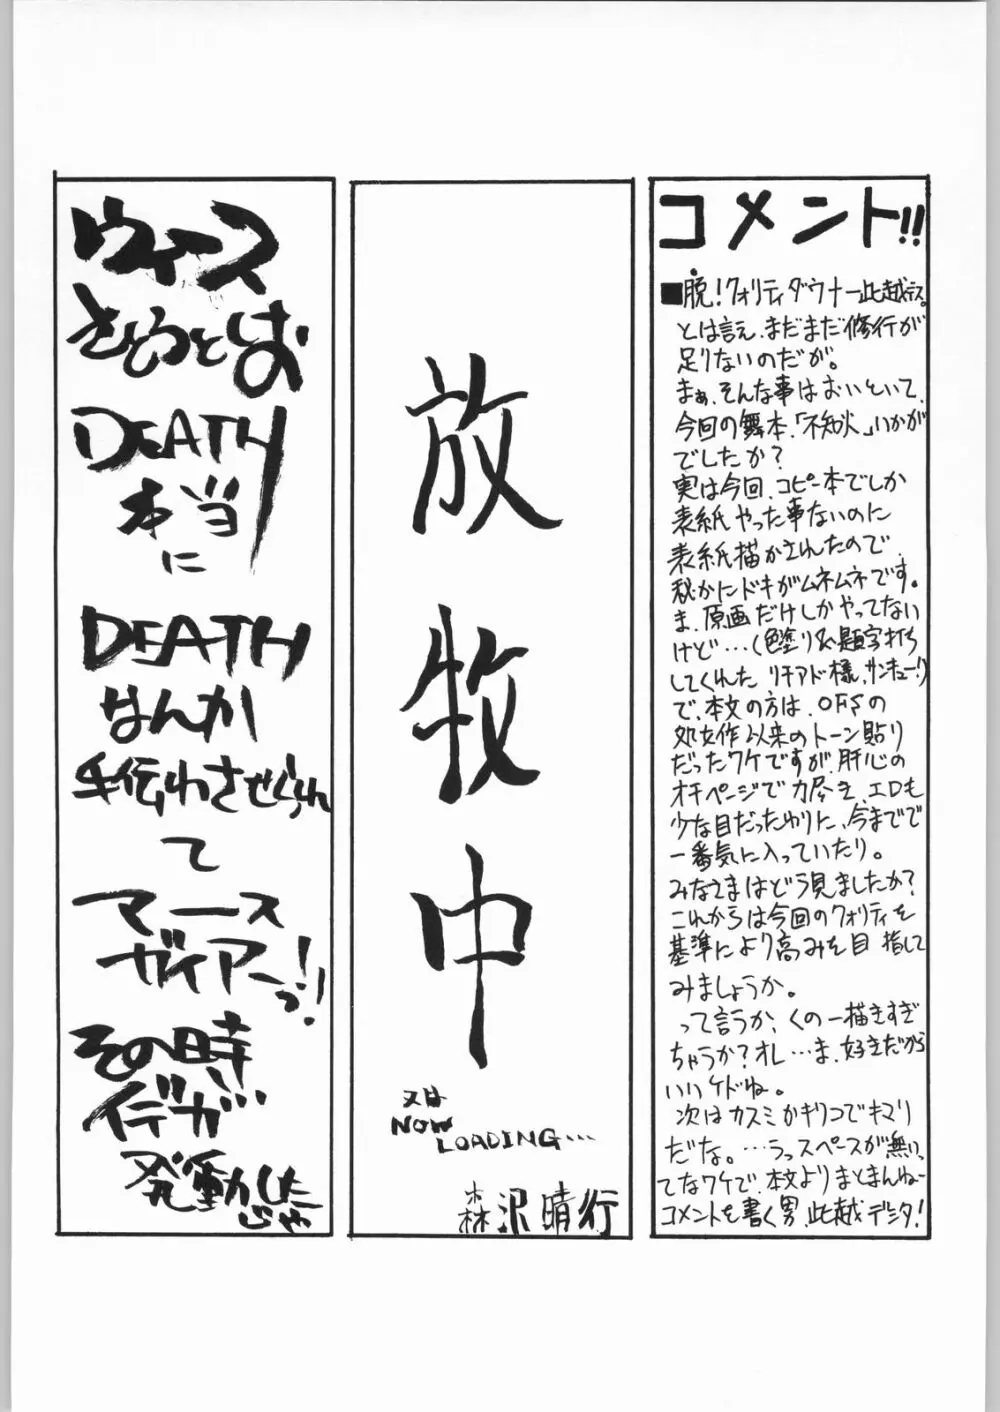 コメント!!
■脱!クォリティダウナー此越デス。
とは言え、まだまだ修行が
足りないのだが。
まぁ、そんな事はおいといて、
今回の舞本、「不知火」いかが
でしたか?
実は今回、コピー本でしか
表紙やった事ないのに
表紙描かされたので、
秘かにドキがムネムネです。
ま、原画だけしかやってない
けど…(色塗り&題字打ち
してくれた リチアド様、サンキュー!)
で、本文の方は、OFSの
処女作以来のトーン貼り
だったワケですが、肝心の
オチページで力尽き、エロも
少な目だったわりに、今までで
一番気に入っていたり。
みなさまはどう見ましたか?
これからは今回のクォリティを
基準により高みを目指して
みましょうか。
って言うか、くの一描きすぎ
ちゃうか?オレ…ま、好きだから
いいケドね。
次はカスミかギリコでキマリ
だな。…うっスペースが無いっ
てなワケで、本文よりまとまんねー
コメントを書く男、此越デシタ!
放牧中
又は
NOW
LOADING…
森沢晴行
ウィース
さとうとしお
DEATH
本当
に
DEATH
なんか
手伝わさせられ
て
マース
ガイアーっ!!
その時
イデが…
発動した
じゃ